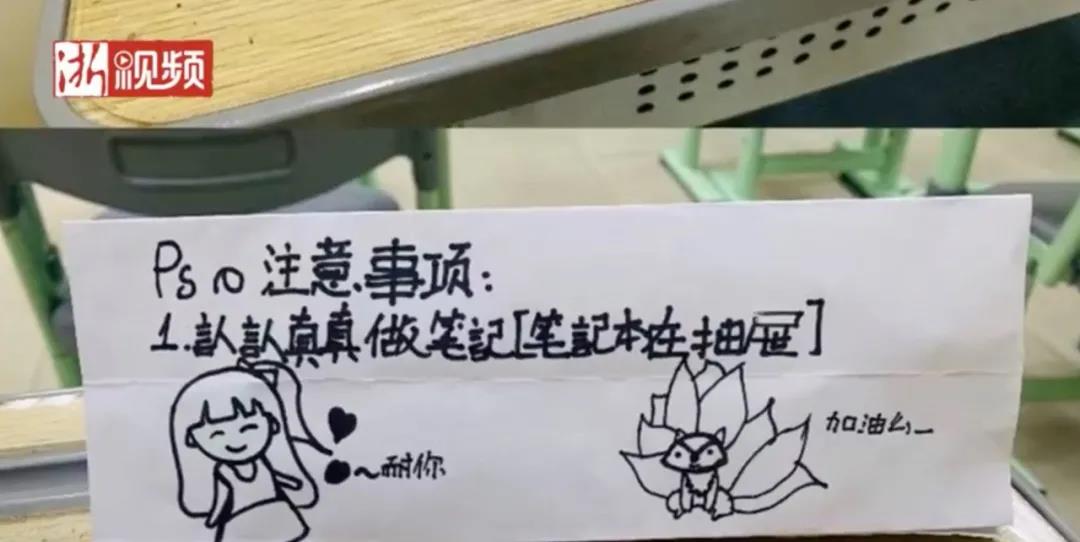 浙视频
Ps∾注意事项:
1.訫訫真真做笔記[笔記本在抽屉]
~耐你
加油幺~